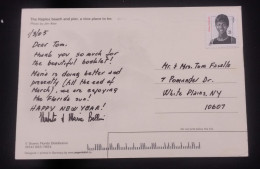 The Naples beach and pier, a fine place to be.
1/5/05
Dear Tom,
Thank you so much for
the beautiful booklet!
Maria is doing better and
presently (till the end of
March), we are enjoying
the Florida sun!
HAPPY NEW YEAR!
Mr. & Mrs. Tom
7 Pomander Dr.
White Plains, NY
10607